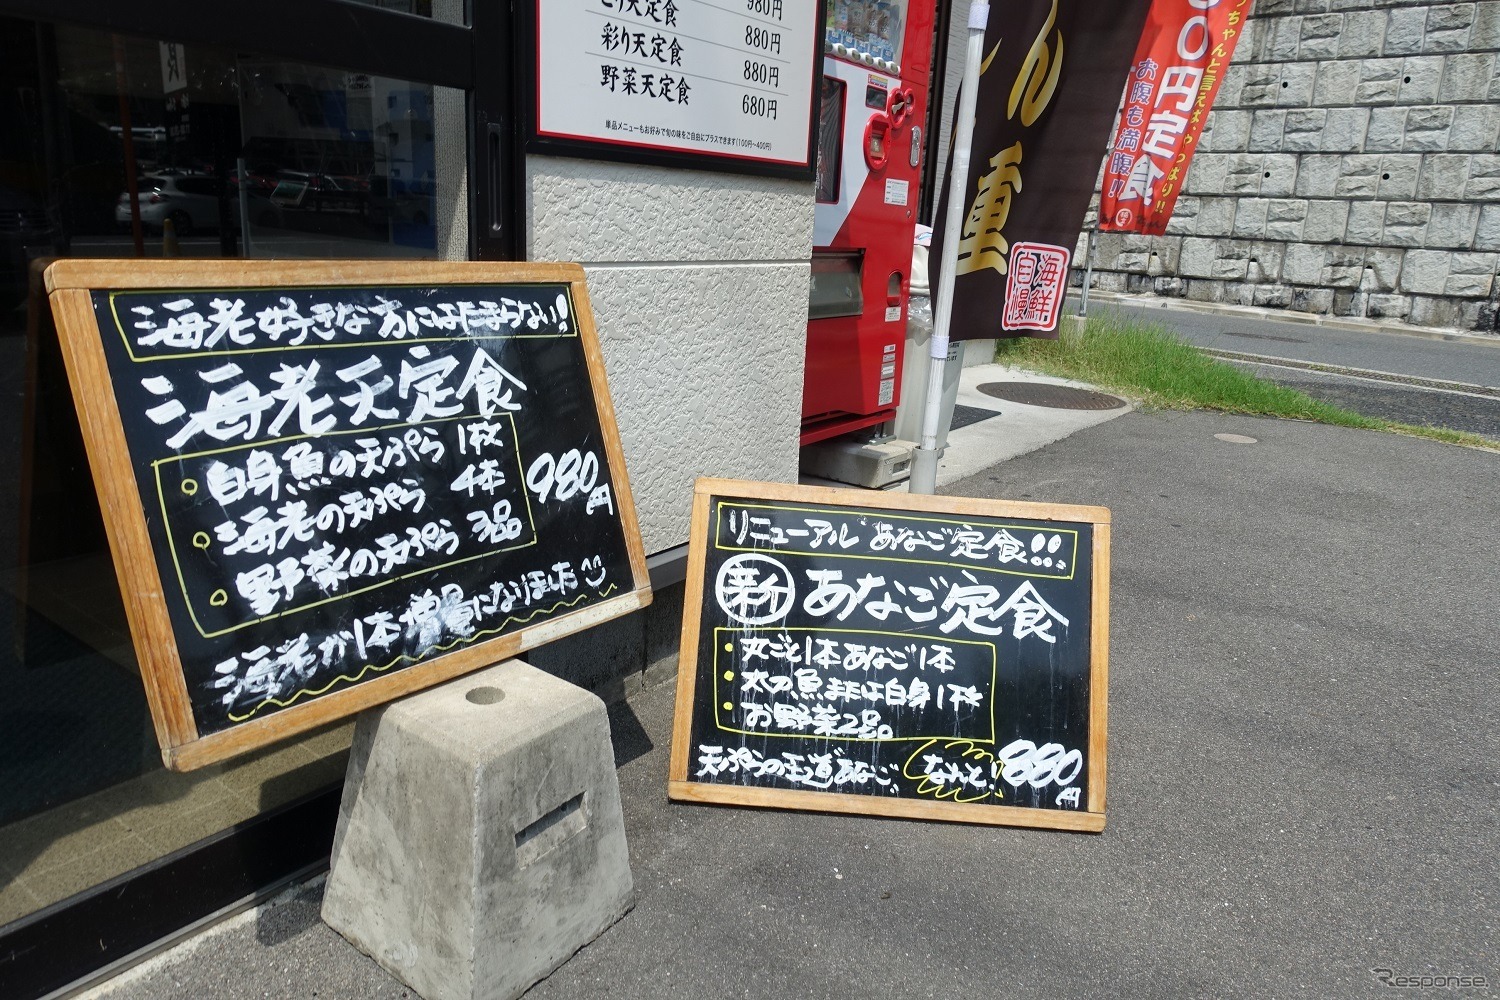 とり天定食 980円
彩り天定食 880円
野菜天定食 880円
680円
単品メニューもお好みで旬の味をご自由にプラスできます(100円〜400円)
海老好きな方にはたまらない!
海老天定食
白身魚の天ぷら 1枚
海老の天ぷら 4本
野菜の天ぷら 3品
980円
海老が1本増量になりました
リニューアル あなご定食!!
新 あなご定食
・丸ごと1本あなご1本
・太の魚または白身1枚
・お野菜2品
天ぷらの王道あなご なんと! 880円
重
海鮮自慢
00円定食
ちゃんと言えば、やっぱり!!
お腹も満腹!!
Response.